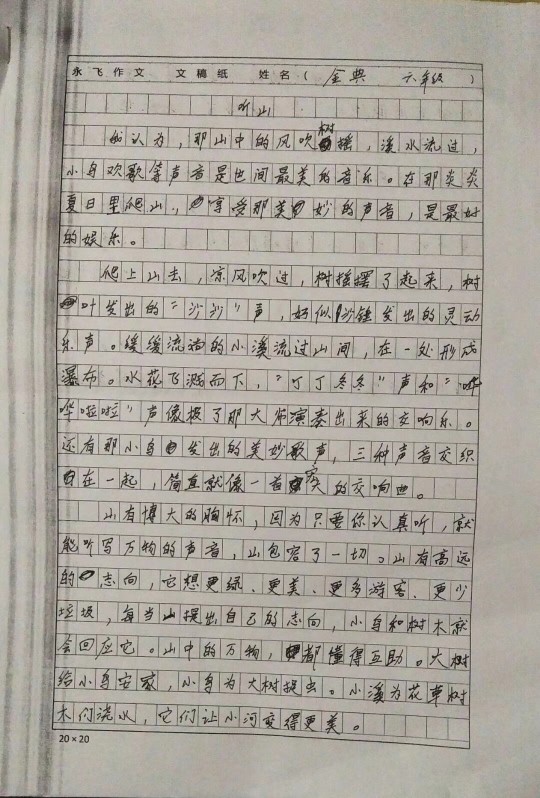 永飞作文 文稿纸 姓名(金典 六年级)
听山
我认为,那山中的风吹树摇,溪水流过,
小鸟欢歌等声音是世间最美的音乐。在那炎炎
夏日里爬山,享受那美妙的声音,是最好
的娱乐。
爬上山去,凉风吹过,树摇摆了起来,树
叶发出的“沙沙”声,好似沙锤发出的灵动
乐声。缓缓流淌的小溪流过山间,在一处形成
瀑布。水花飞溅而下,“叮丁冬冬”声和“哗
哗啦啦”声像极了那大师演奏出来的交响乐。
还有那小鸟发出的美妙歌声,三种声音交织
在一起,简直就像一首的交响曲。
山有博大的胸怀,因为只要你认真听,就
能听写万物的声音,山包容了一切。山有高远
的志向,它想更绿、更美、更多游客、更少
垃圾,每当山提出自己的志向,小鸟和树木就
会回应它。山中的万物,都懂得互助。大树
给小鸟安家,小鸟为大树捉虫。小溪为花草树
木们浇水,它们让小河变得更美。
20×20